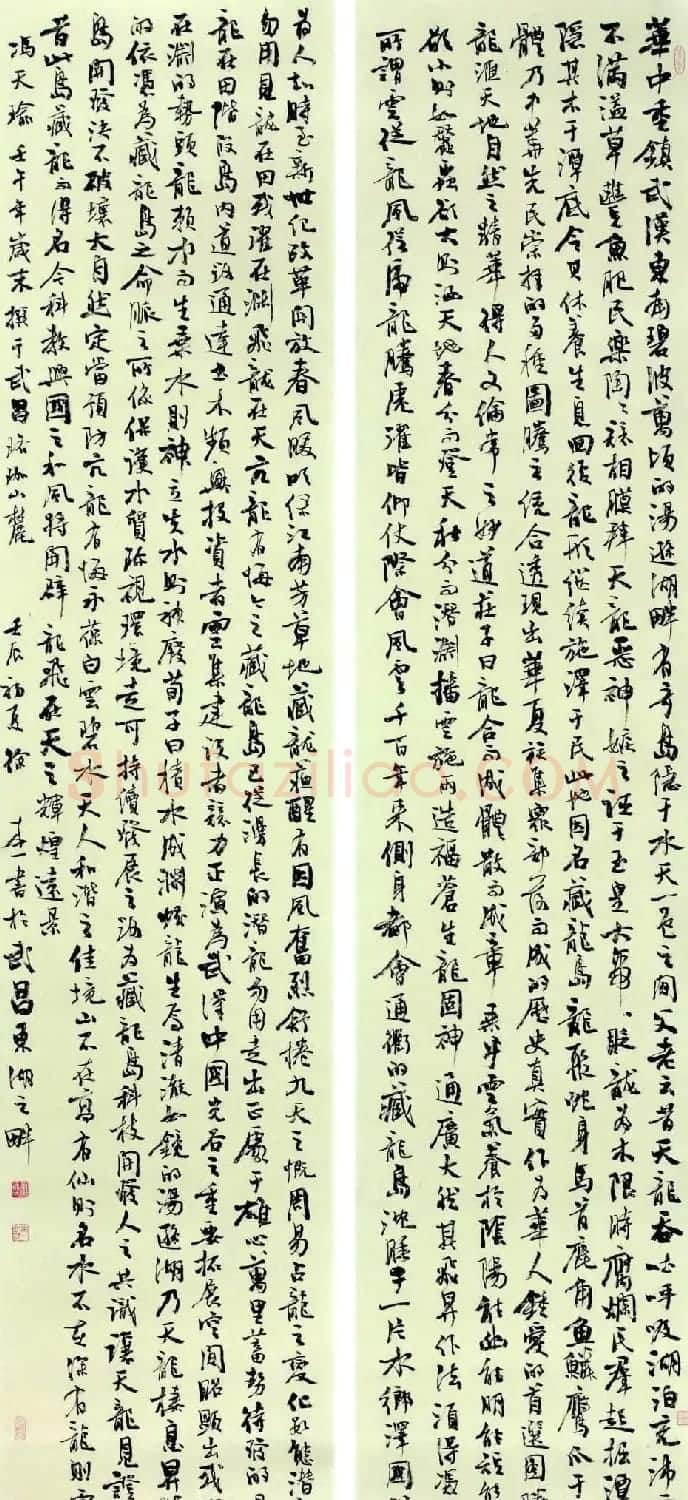 華中重鎮武漢東南碧波萬頃的湯遜湖畔有奇島隱于水天一色之間父老云昔天龍吞吐呼吸湖泊充沛而
不滿溢草豐魚肥民樂陶々競相膜拜天龍惡神嫉之誣于玉皇大帝貶龍為木限時腐爛民群起掘湟
隱其木于潭底令其休養生息回復龍形繼續施澤于民此地因名藏龍島龍駝身馬首鹿角魚鱗鷹爪于
體乃中華先民崇拜的多種圖騰之綜合透現出華夏族集眾部落而成的歷史真實作為華人鍾愛的首選圖騰
龍滙天地自然之精華得人文倫常之妙道莊子曰龍合而成體散而成章乘乎雲氣養於陰陽能幽能明能短能
欲小則如蠶蟲欲大則涵天地春分而登天秋分而潛淵播雲施雨造福蒼生龍固神通廣大然其飛昇作法須得憑
所謂雲從龍風從虎龍騰虎躍皆仰仗際會風雲千百年來側身都會通衢的藏龍島沈睡于一片水鄉澤國
昔人知時至新世紀改革開放春風暖以綠江南芳草地藏龍甦醒有因風奮烈舒捲九天之慨周易占龍之變化形態潛
勿用見龍在田或躍在淵飛龍在天亢龍有悔今之藏龍島已從漫長的潛龍勿用走出正處于雄心萬里蓄勢待發的見
龍在田階段島内道路通達土木頻興投資者雲集建設者競力正演為武漢中國光谷之重要拓展空間昭顯出或
在淵的勢頭龍賴水而生乘水則神立失水則神廢荀子曰積水成淵蛟龍生焉清澈如鏡的湯遜湖乃天龍棲息昇
的依憑為藏龍島之命脈之所係保護水質珍視環境走可持續發展之路為藏龍島科技開發人之共識讓天龍見證
島開發決不破壞大自然定當預防亢龍有悔永葆白雲碧水天人和諧之佳境山不在高有仙則名水不在深有龍則靈
昔此島藏龍而得名今科教興國之和風將開辟龍飛在天之輝煌遠景
馮天瑜壬午年歲末撰于武昌珞珈山麓 壬辰初夏徐本一書於武昌東湖之畔
Shufaziliao.COM